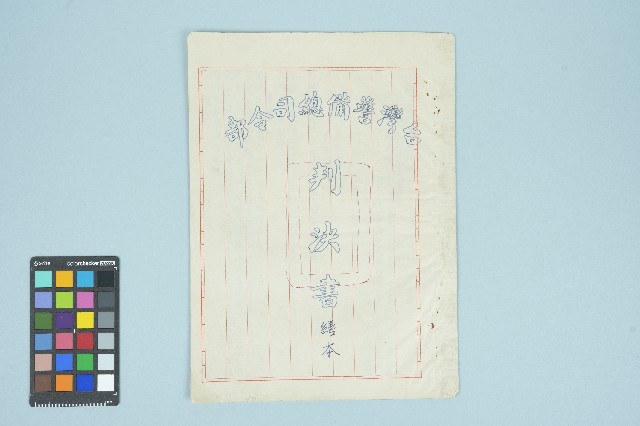 台灣警備總司令部
判決書
繕本
colorchecker